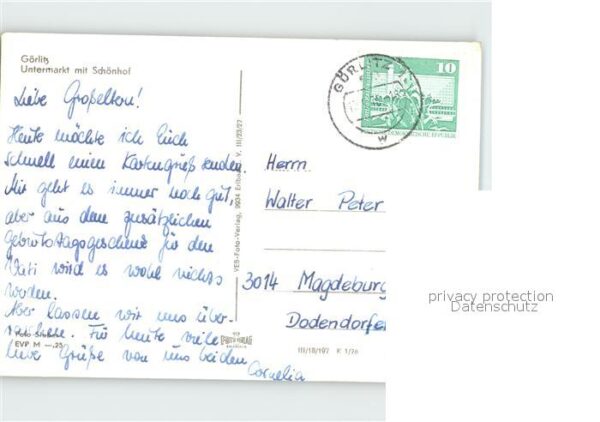 Görlitz
Untermarkt mit Schönhof
Liebe Großeltern!
Heute möchte ich Euch
schnell einen Kartengruß senden.
Mir geht es immer noch gut,
aber aus dem zusätzlichen
Geburtstagsgeschenk für den
Vati wird es wohl nichts
werden.
Aber lassen wir uns über-
raschen. Für heute viele
liebe Grüße von uns beiden
Cornelia
EVP M —,25
VEB-Foto-Verlag, 9934 Erlbach V.
III/18/197 K 1/76
GÖRLITZ 1
w
10
DEMOKRATISCHE REPUBLIK
Herrn
Walter Peter
3014 Magdeburg
Dodendorfer
privacy protection
Datenschutz